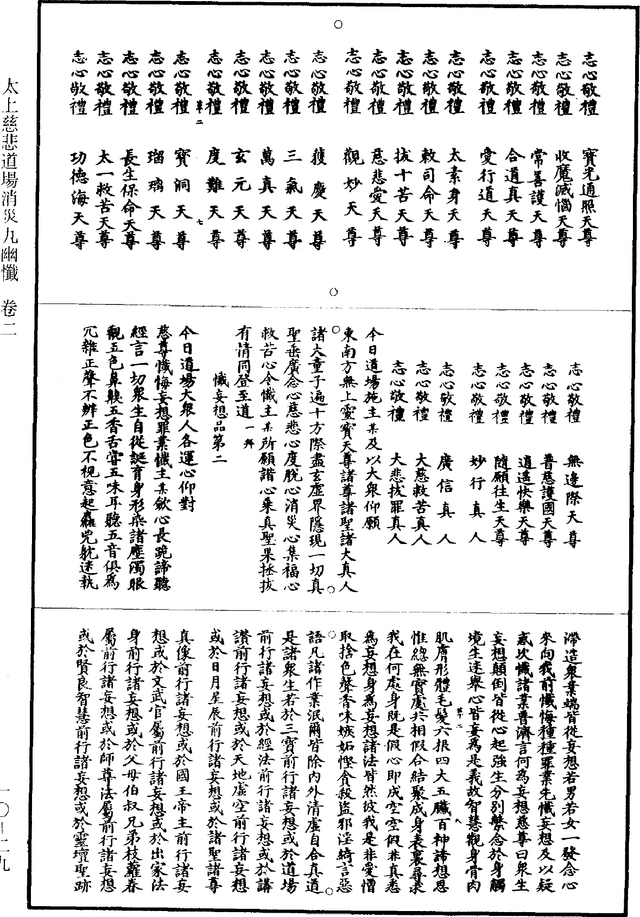 太上慈悲道場消災九幽懺 卷二
一〇—二九
志心敬禮 寶光通照天尊
志心敬禮 收魔滅惱天尊
志心敬禮 常善護天尊
志心敬禮 合道真天尊
志心敬禮 愛行道天尊
志心敬禮 太素身天尊
志心敬禮 救司命天尊
志心敬禮 拔十苦天尊
志心敬禮 慈悲愛天尊
志心敬禮 觀妙天尊
志心敬禮 獲慶天尊
志心敬禮 三氣天尊
志心敬禮 萬真天尊
志心敬禮 玄元天尊
志心敬禮 度難天尊
志心敬禮 寶洞天尊
志心敬禮 瑠璃天尊
志心敬禮 長生保命天尊
志心敬禮 太一救苦天尊
志心敬禮 功德海天尊
志心敬禮 無邊際天尊
志心敬禮 普慈護國天尊
志心敬禮 逍遥快樂天尊
志心敬禮 隨願往生天尊
志心敬禮 妙行真人
志心敬禮 廣信真人
志心敬禮 大慈救苦真人
志心敬禮 大悲拔罪真人
今日道場施主某及以大衆仰願
東南方無上靈寶天尊諸尊諸聖諸大真人
諸大童子遍十方際盡玄虚界隱現一切真
聖垂廣念心慈悲心度脫心消災心集福心
救苦心令懺主某所願諧心乗真聖果拯拔
有情同登至道 一拜
懺妄想品第二
今日道場大衆人各運心仰對
慈尊懺悔妄想罪業懺主某歛心長跪諦聽
經言一切衆生自從誕育身形染諸塵濁眼
觀五色鼻齅五香舌甞五味耳聽五音俱爲
冗雜正聲不辨正色不視意起麤完躭迷執
滯造衆業端皆從妄想若男若女一發念心
來向我前懺悔種種罪業先懺妄想及以疑
惑次懺諸業普濟言何爲妄想慈尊曰衆生
妄想顛倒皆從心起強生分別繫念於身觸
境生迷舉心皆妄爲是義故智慧觀身骨肉
肌膚形體毛髮六根四大五臟百神諦想思
惟總無實處共相假合結聚成身表裏尋求
我在何處身既是假心即成空空假非真悉
爲妄想身爲妄想諸法皆然彼我是非愛憎
取捨色聲香味嫉妬慳貪殺盗邪淫綺言惡
語凡諸作業泯爾皆除内外清虚自合真道
是諸衆生若於三寶前行諸妄想或於道場
前行諸妄想或於經法前行諸妄想或於講
讚前行諸妄想或於天地虚空前行諸妄想
或於日月星辰前行諸妄想或於諸聖諸尊
真像前行諸妄想或於國王帝主前行諸妄
想或於文武官屬前行諸妄想或於出家法
身前行諸妄想或於父母伯叔兄弟枝蔕春
屬前行諸妄想或於師尊法屬前行諸妄想
或於賢良智慧前行諸妄想或於靈壇聖跡